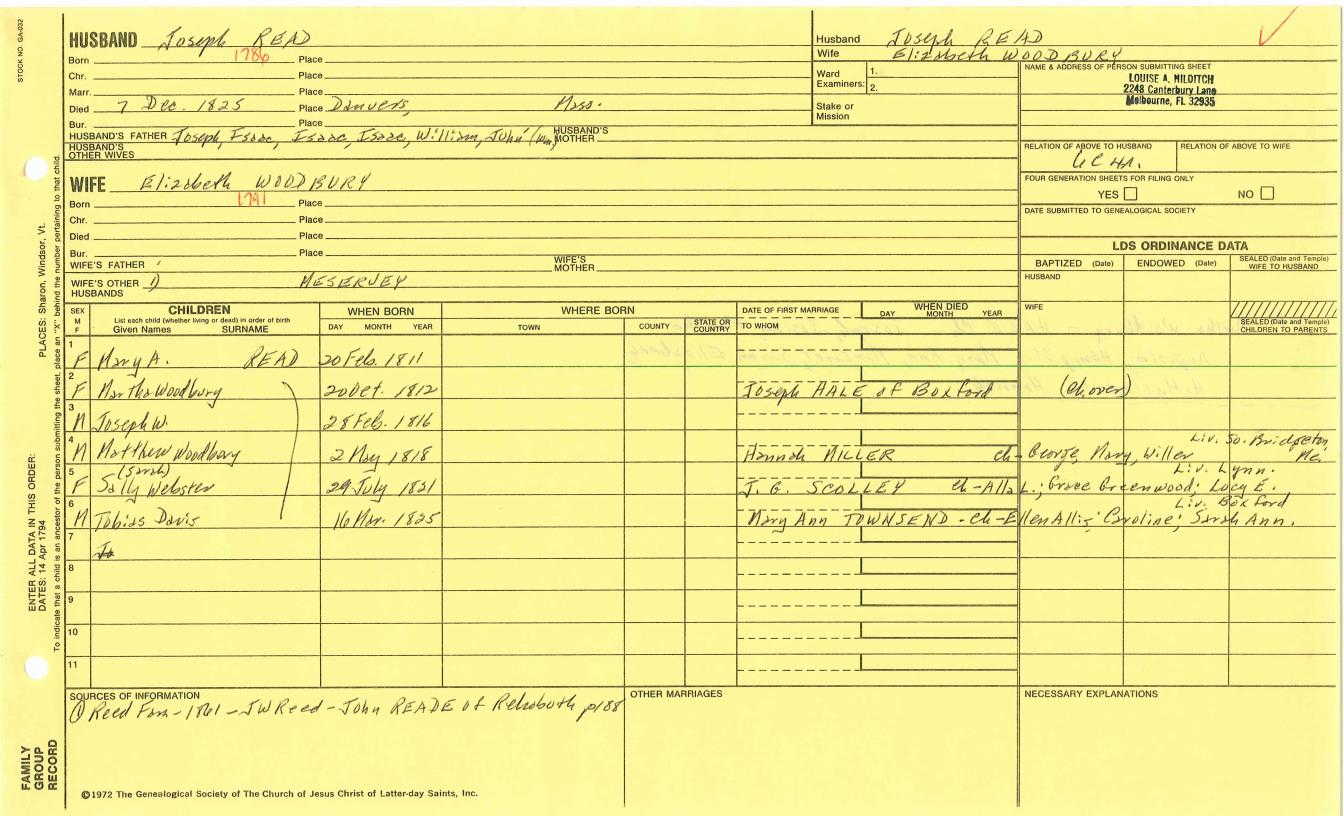 STOCK NO. GA-032
HUSBAND Joseph READ
1786
Born Place
Chr. Place
Marr. Place
Died 7 Dec. 1825 Place Danvers, Mass.
Bur. Place
HUSBAND'S FATHER Joseph, Isaac, Isaac, Isaac, William, John (Wm) HUSBAND'S MOTHER
HUSBAND'S OTHER WIVES
WIFE Elizabeth WOODBURY
1791
Born Place
Chr. Place
Died Place
Bur. Place
WIFE'S FATHER WIFE'S MOTHER
WIFE'S OTHER HUSBANDS 1) MESERVEY
Husband Joseph READ
Wife Elizabeth WOODBURY
Ward Examiners: 1.
2.
Stake or Mission
NAME & ADDRESS OF PERSON SUBMITTING SHEET
LOUISE A. HILDITCH
2248 Canterbury Lane
Melbourne, FL 32935
RELATION OF ABOVE TO HUSBAND RELATION OF ABOVE TO WIFE
FOUR GENERATION SHEETS FOR FILING ONLY
YES NO
DATE SUBMITTED TO GENEALOGICAL SOCIETY
LDS ORDINANCE DATA
BAPTIZED (Date) ENDOWED (Date) SEALED (Date and Temple) WIFE TO HUSBAND
HUSBAND
WIFE
SEALED (Date and Temple) CHILDREN TO PARENTS
SEX M F
CHILDREN
List each child (whether living or dead) in order of birth
Given Names SURNAME
WHEN BORN
DAY MONTH YEAR
WHERE BORN
TOWN COUNTY STATE OR COUNTRY
DATE OF FIRST MARRIAGE
TO WHOM
WHEN DIED
DAY MONTH YEAR
1 F Mary A. READ 20 Feb. 1811
2 F Martha Woodbury 20 Oct. 1812 Joseph HALE of Boxford (ch. over)
3 M Joseph W. 28 Feb. 1816
Liv. So. Bridgeton Me.
4 M Matthew Woodbury 2 May 1818 Hannah MILLER ch- George, Mary, Willer
Liv. Lynn.
(Sarah)
5 F Sally Webster 29 July 1821 J. G. SCOLLEY ch-Alla L.; Grace Greenwood; Lucy E.
Liv. Boxford
6 M Tobias Davis 16 Mar. 1825 Mary Ann TOWNSEND - ch-Ellen Allis; Caroline; Sarah Ann.
7 Jo
8
9
10
11
SOURCES OF INFORMATION
① Reed Fam - 1861 - JW Reed - John READE of Rehoboth p188
OTHER MARRIAGES
NECESSARY EXPLANATIONS
©1972 The Genealogical Society of The Church of Jesus Christ of Latter-day Saints, Inc.
FAMILY GROUP RECORD
ENTER ALL DATA IN THIS ORDER: PLACES: Sharon, Windsor, Vt.
DATES: 14 Apr 1794
To indicate that a child is an ancestor of the person submitting the sheet, place an "X" behind the number pertaining to that child.